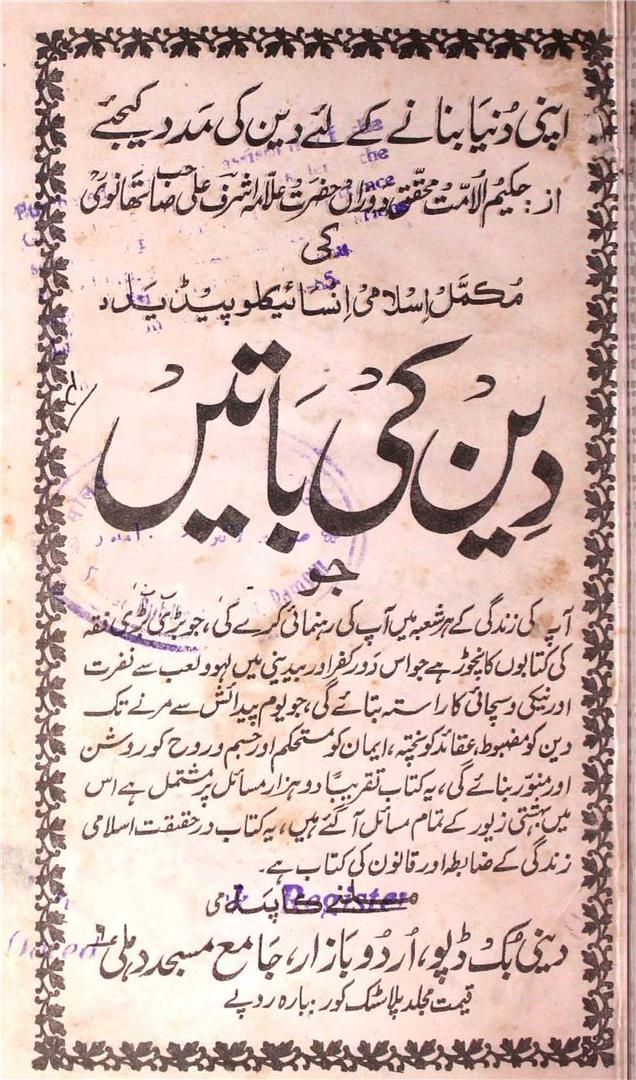 اپنی دُنیا بنانے کے لئے دین کی مَدد کیجئے
از: حکیم الامّت محقّق دوراں حضرت علامہ اشرف علی صاحب تھانویؒ
کی
مُکمّل اِسلامی اِنسائیکلو پیڈیا
دِین کی بَاتیں
جو
آپ کی زندگی کے ہر شعبہ میں آپ کی رہنمائی کرے گی، جو بڑی بڑی فقہ
کی کتابوں کا نچوڑ ہے جو اس دَورِ کفر اور بیدینی میں لہو و لعب سے نفرت
اور نیکی و سچائی کا راستہ بتائے گی، جو یوم پیدائش سے مرنے تک
دین کو مضبوط، عقائد کو پختہ، ایمان کو مستحکم اور جسم و روح کو روشن
اور منوّر بنائے گی، یہ کتاب تقریباً دو ہزار مسائل پر مشتمل ہے اس
میں بہشتی زیور کے تمام مسائل آ گئے ہیں، یہ کتاب در حقیقت اسلامی
زندگی کے ضابطہ اور قانون کی کتاب ہے۔
Register
دینی بُک ڈپو، اُردو بازار، جامع مسجد دہلی ۶
قیمت مجلد پلاسٹک کور: بارہ روپے